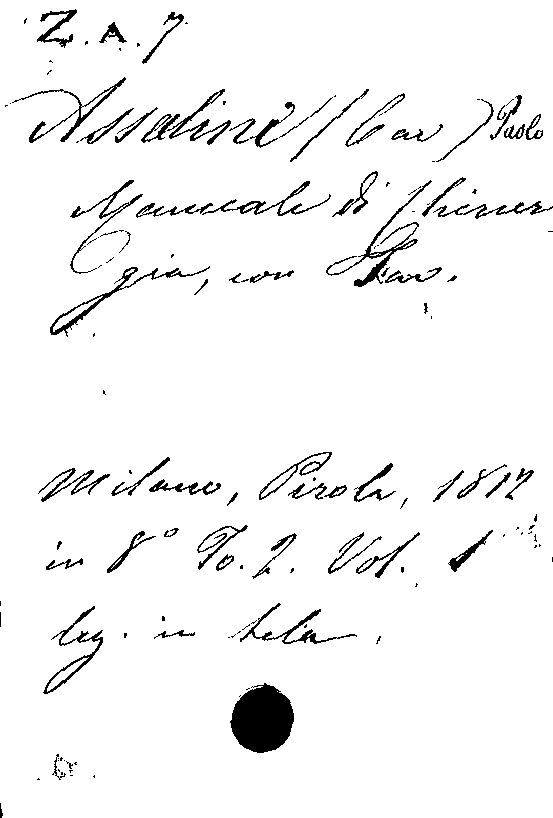 Z. A. 7
Assalini (Cav) Paolo
Manuale di Chirur
gia, con Tav.
Milano, Pirola, 1812
in 8° To. 2. Vol. 1
leg. in tela.